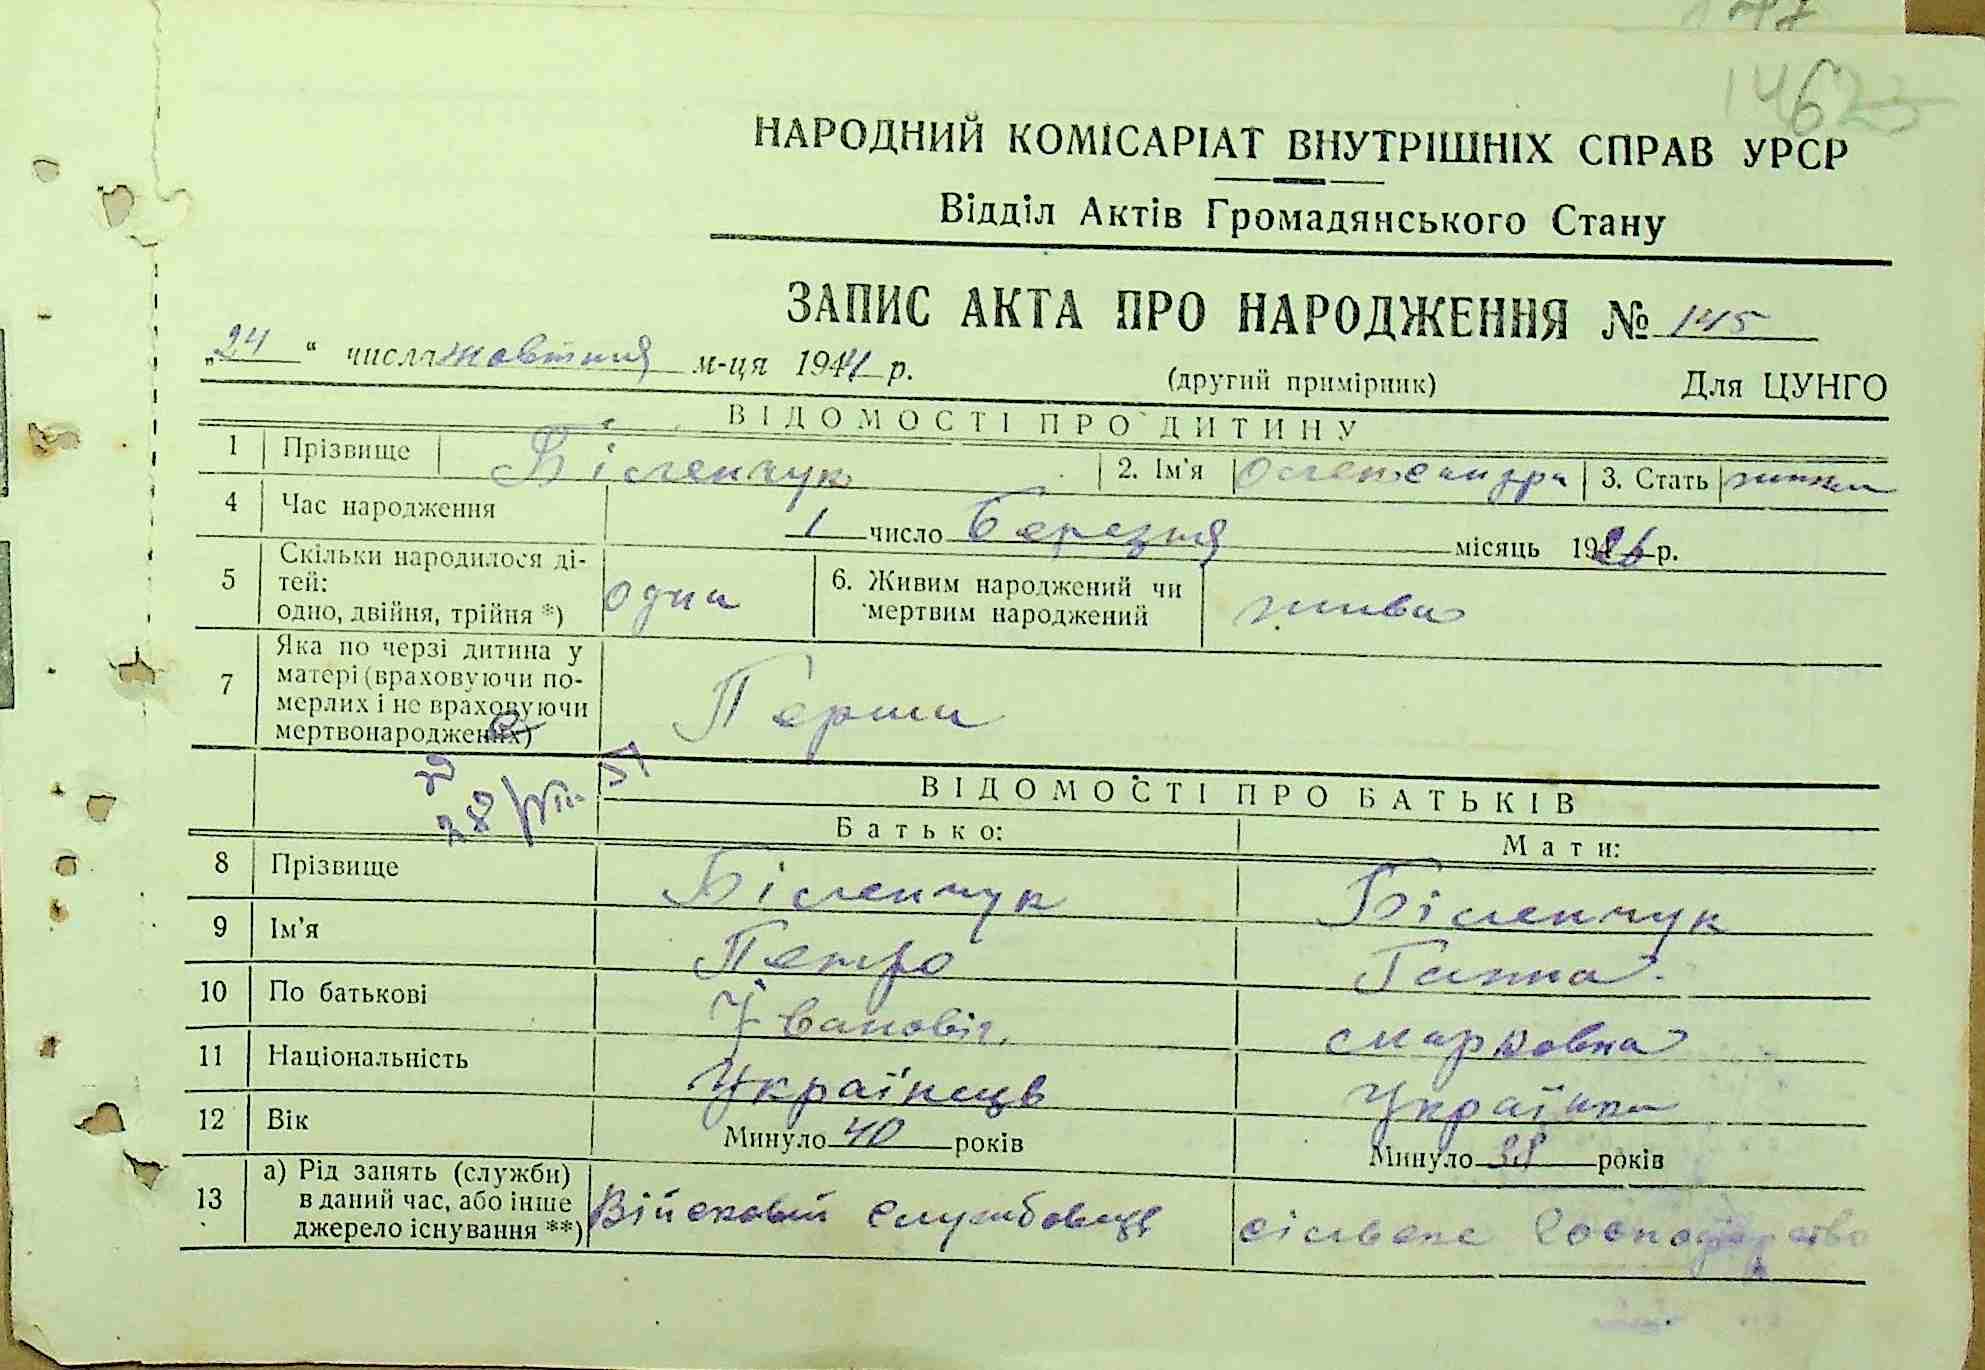 НАРОДНИЙ КОМІСАРІАТ ВНУТРІШНІХ СПРАВ УРСР
Відділ Актів Громадянського Стану
ЗАПИС АКТА ПРО НАРОДЖЕННЯ № 145
„24“ числа жовтня м-ця 1944 р. (другий примірник) Для ЦУНГО
ВІДОМОСТІ ПРО ДИТИНУ
1 Прізвище Біленчук 2. Ім'я Олександра 3. Стать жінка
4 Час народження 1 число Березня місяць 1926 р.
5 Скільки народилося ді-
тей:
одно, двійня, трійня *) одна 6. Живим народжений чи
мертвим народжений жива
7 Яка по черзі дитина у
матері (враховуючи по-
мерлих і не враховуючи
мертвонароджених) Перша
28/VIII 51
ВІДОМОСТІ ПРО БАТЬКІВ
Батько: Мати:
8 Прізвище Біленчук Біленчук
9 Ім'я Петро Ганна
10 По батькові Івановіч Марковна
11 Національність Українець Українка
12 Вік Минуло 40 років Минуло 38 років
13 а) Рід занять (служби)
в даний час, або інше
джерело існування **) Військовий службовець сільске господарство